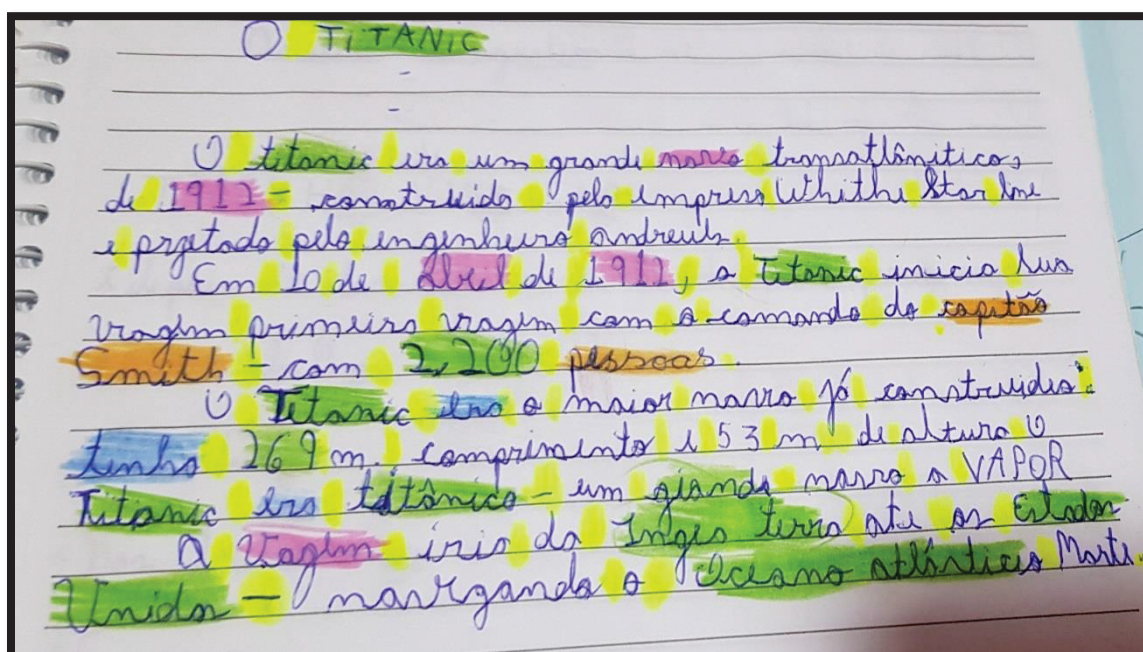 O TITANIC
O titanic era um grande navio transatlânitico,
de 1911 - construido pelo impresa Whithe Star line
e prjetado pelo engenheiro andreuls.
Em 10 de Abril de 1911, o Titanic inicia sua
viagem primeira viagem com o comando do capitão
Smith - com 2,200 pessoas.
O Titanic era o maior navio já construido:
tinha 269 m. comprimento e 53 m de altura O
Titanic era titânico - um giande navio a VAPOR
A viagem iria da Ingla terra até os Estados
Unidos - navegando o Oceano atlântico Norte.